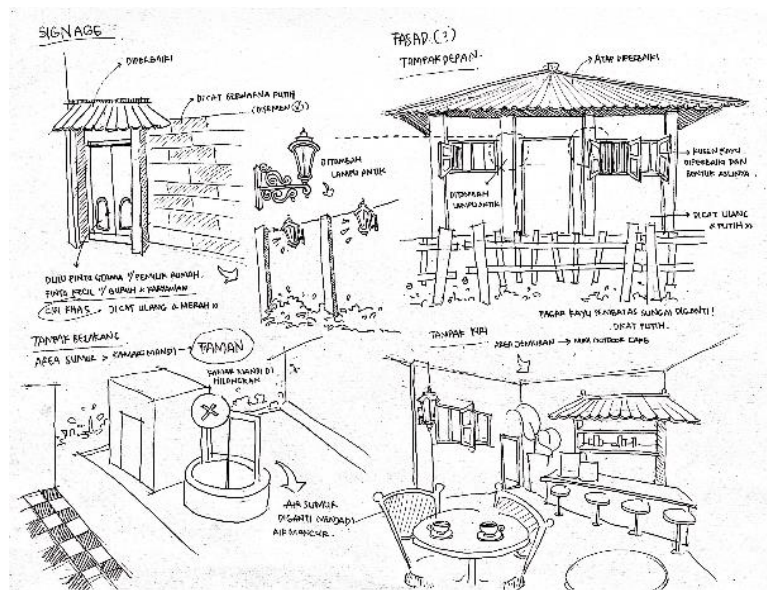 SIGNAGE
DIPERBAIKI
DICAT BERWARNA PUTIH
(DISEMEN
DITAMBAH
LAMPU ANTIK
DULU PINTU UTAMA U/ PEMILIK RUMAH.
PINTU KECIL U/ BURUH & KARYAWAN
CIRI KHAS DICAT ULANG & MERAH
FASAD (?)
TAMPAK DEPAN.
ATAP DIPERBAIKI
KUSEN KAYU
DIPERBAIKI DAN
BENTUK ASLINYA.
DITAMBAH
LAMPU ANTIK
DICAT ULANG
PUTIH
PAGAR KAYU PEMBATAS SUNGAI DIGANTI!
DICAT PUTIH.
TAMPAK BELAKANG
AREA SUMUR & KAMAR MANDI TAMAN
KAMAR MANDI DI
HILANGKAN
AIR SUMUR
DIGANTI MENJADI
AIR MANCUR.
TAMPAK KIRI
AREA JEMURAN → MINI OUTDOOR CAFE